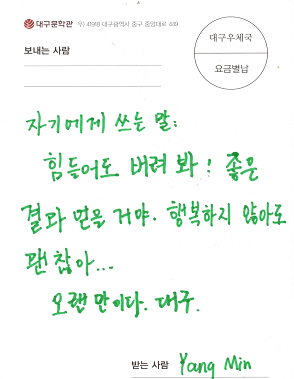 대구문학관 우) 41918 대구광역시 중구 중앙대로 449
보내는 사람
대구우체국
요금별납
자기에게 쓰는 말:
힘들어도 버려 봐! 좋은
결과 얻을 거야. 행복하지 않아도
괜찮아...
오랜만이다. 대구.
받는 사람 Yang Min